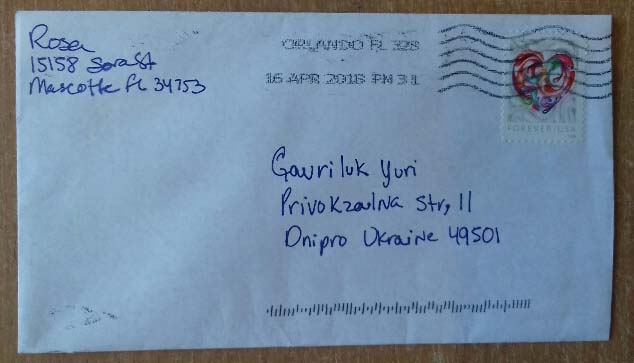 Rosa
15158 Sora St
Mascotte FL 34753
ORLANDO FL 328
16 APR 2018 PM 3 L
FOREVER/USA
Gavriluk Yuri
Privokzalna Str, 11
Dnipro Ukraine 49501